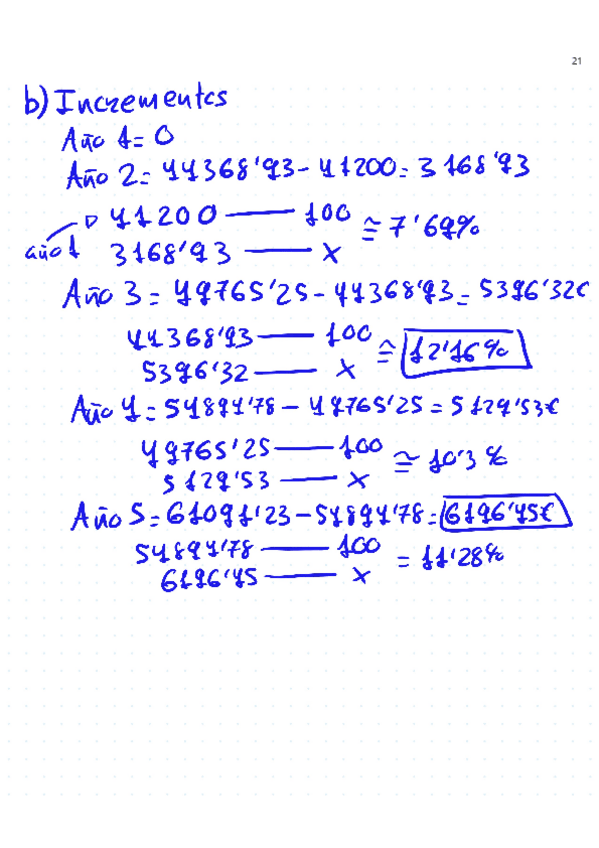 21
b) Incrementos
Año 1 = 0
Año 2 = 44368'93 - 41200 = 3168'93
▷ 41200 —— 100 ≅ 7'69%
año 1 3168'93 —— x
Año 3 = 49765'25 - 44368'93 = 5396'32€
44368'93 —— 100 ≅ 12'16%
5396'32 —— x
Año 4 = 54894'78 - 49765'25 = 5129'53€
49765'25 —— 100 ≅ 10'3 %
5129'53 —— x
Año 5 = 61091'23 - 54894'78 = 6196'45€
54894'78 —— 100 = 11'28%
6196'45 —— x